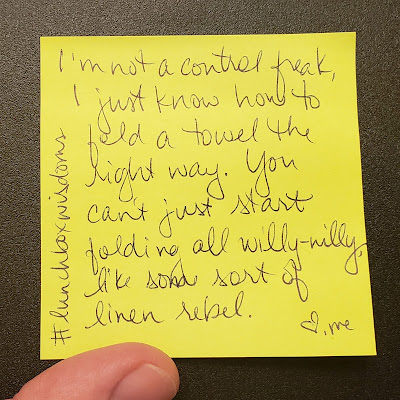 I'm not a control freak,
I just know how to
fold a towel the
right way. You
can't just start
folding all willy-nilly,
like some sort of
linen rebel.
♡, me
#lunchboxwisdoms